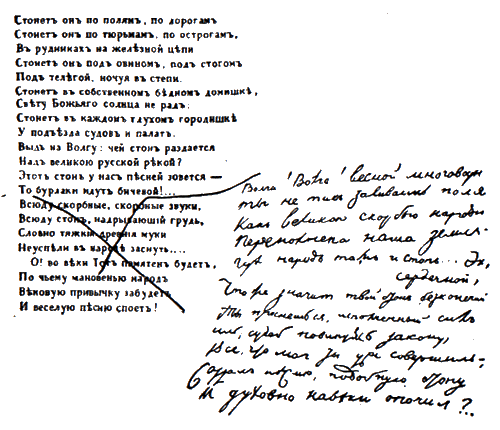 Стонетъ онъ по полямъ, по дорогамъ
Стонетъ онъ по тюрьмамъ, по острогамъ,
Въ рудникахъ на желѣзной цѣпи
Стонетъ онъ подъ овиномъ, подъ стогомъ
Подъ телѣгой, ночуя въ степи.
Стонетъ въ собственномъ бѣдномъ домишкѣ,
Свѣту Божьяго солнца не радъ;
Стонетъ въ каждомъ глухомъ городишкѣ
У подъѣзда судовъ и палатъ.
Выдь на Волгу: чей стонъ раздается
Надъ великою русской рѣкой?
Этотъ стонъ у насъ пѣсней зовется —
То бурлаки идутъ бичевой!...
Всюду скорбные, скорбные звуки,
Всюду стонъ, надрывающій грудь,
Словно тяжкія древнія муки
Неуспѣли въ народѣ заснуть,...
О! во вѣки Тотъ памятенъ будетъ,
По чьему мановенью народъ
Вѣковую привычку забудетъ
И веселую пѣсню споетъ!
Волга! Волга! весной многоводн
ты не такъ заливаешь поля
Какъ великою скорбью народн
Переполнена наша земля
гдѣ народъ тамъ и стонъ... Эх,
сердечной,
Что же значитъ твой стонъ безконечный
Ты проснешься, исполненный силъ
иль, судебъ повинуясь закону,
Все, что могъ ты уже совершилъ,
Создалъ пѣсню, подобную стону
И духовно навѣки почилъ?..